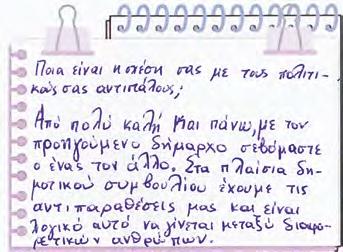 Ποια είναι η σχέση σας με τους πολιτι-
κούς σας αντιπάλους;
Από πολύ καλή και πάνω, με τον
προηγούμενο δήμαρχο σεβόμαστε
ο ένας τον άλλο. Στα πλαίσια δη-
μοτικού συμβουλίου έχουμε τις
αντιπαραθέσεις μας και είναι
λογικό αυτό να γίνεται μεταξύ διαφο-
ρετικών ανθρώπων.